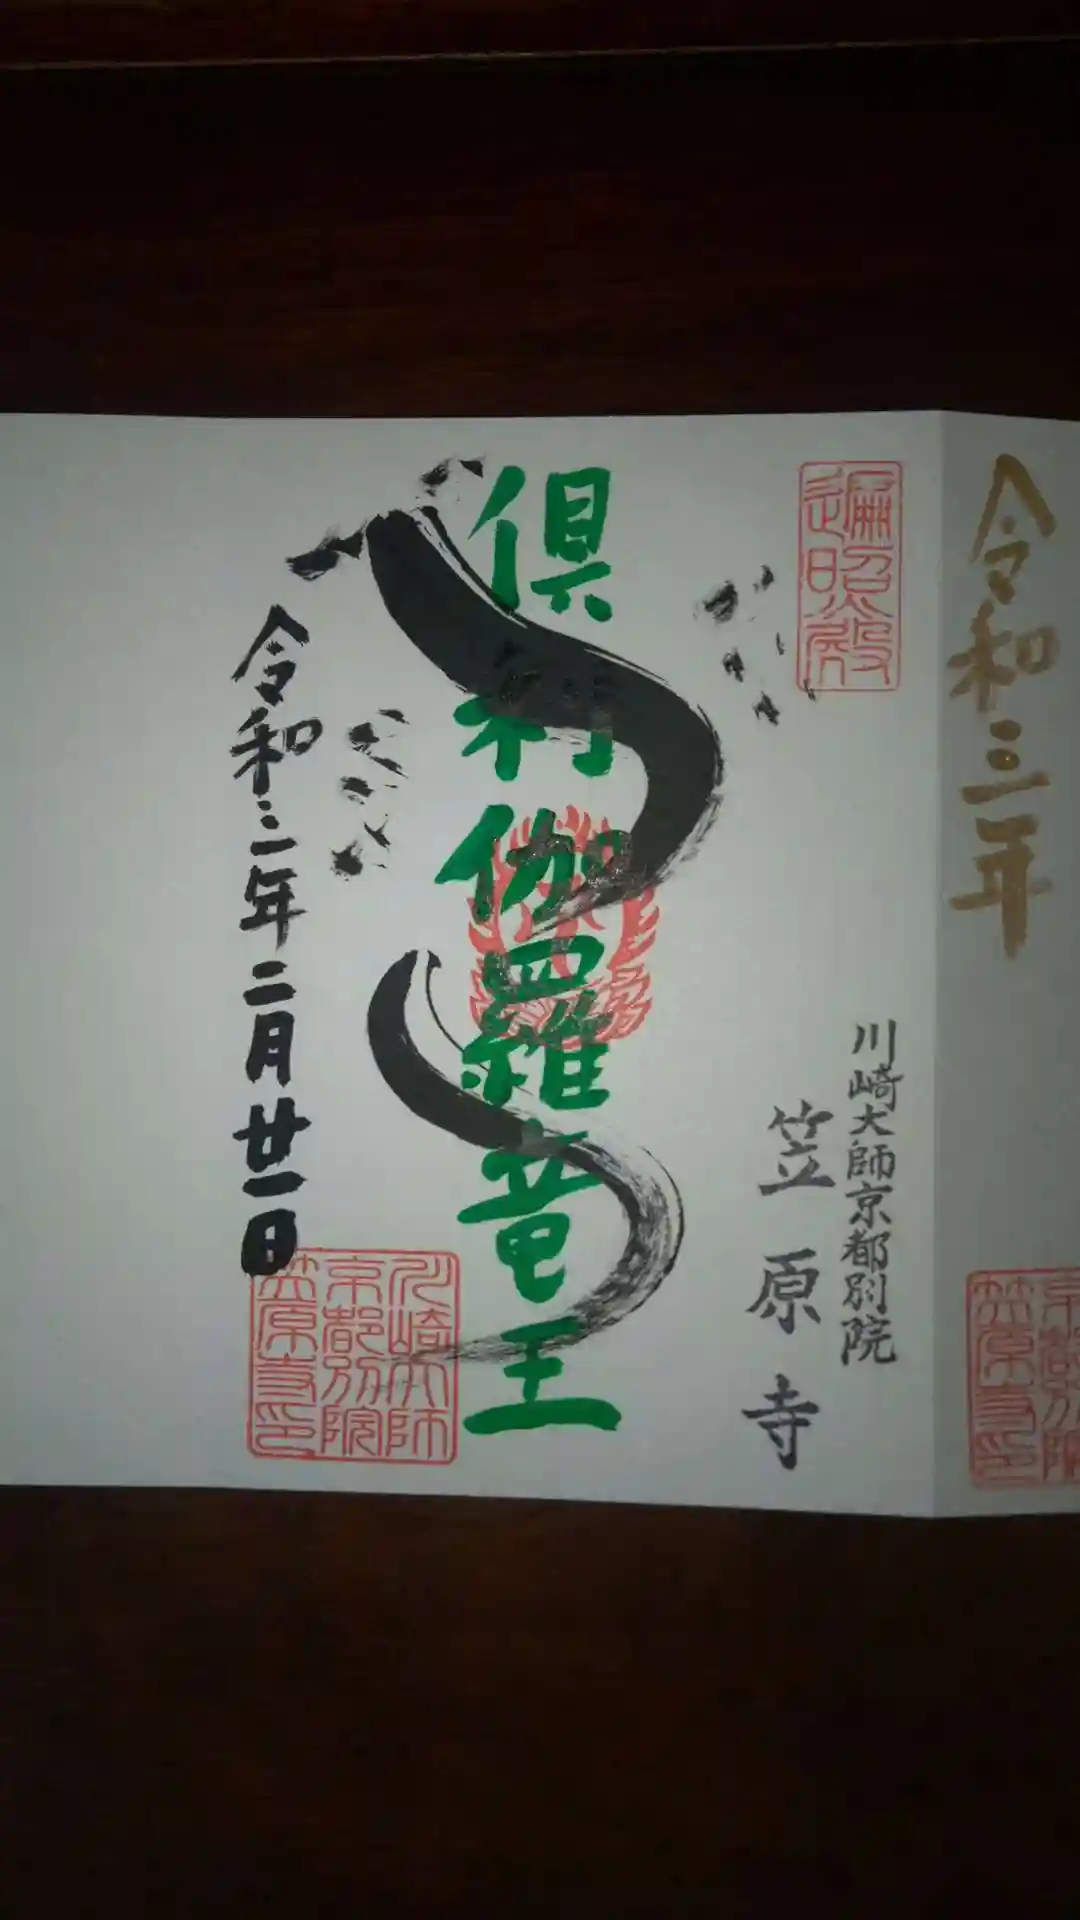 令和三年
京都別院
笠原寺印
遍照殿
川崎大師京都別院
笠原寺
倶利伽羅竜王
令和三年二月廿一日
川崎大師
京都別院
笠原寺印